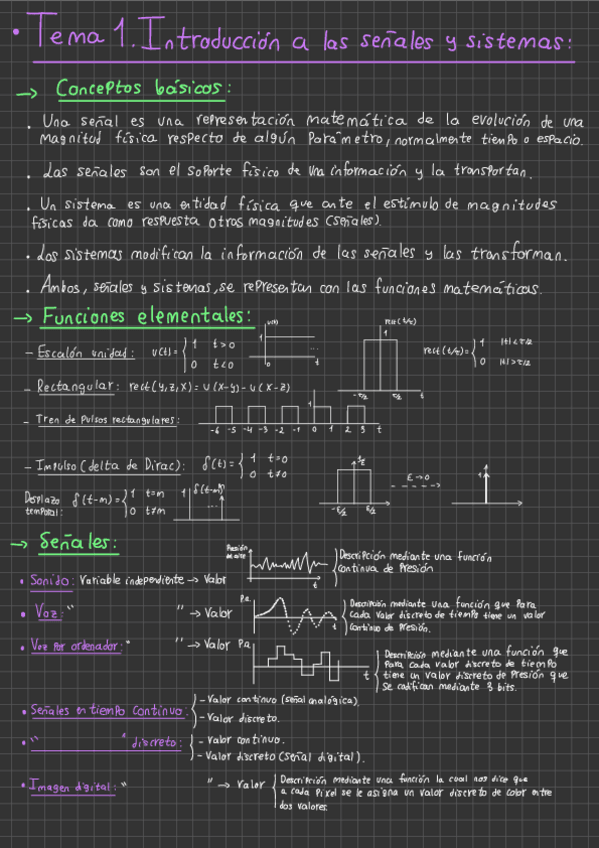 • Tema 1. Introducción a las señales y sistemas:
→ Conceptos básicos:
• Una señal es una representación matemática de la evolución de una
magnitud física respecto de algún Parámetro, normalmente tiempo o espacio.
• Las señales son el soporte físico de una información y la transportan.
• Un sistema es una entidad física que ante el estímulo de magnitudes
físicas da como respuesta otras magnitudes (señales).
• Los sistemas modifican la información de las señales y las transforman.
• Ambos, señales y sistemas, se representan con las funciones matemáticas.
→ Funciones elementales:
- Escalón unidad: u(t) = { 1 t>0
0 t<0
u(t)
1
...
t
rect(t/τ)
1
-τ/2 τ/2 t
rect(t/τ) = { 1 |t|<τ/2
0 |t|>τ/2
- Rectangular: rect(y,z,x) = u(x-y) - u(x-z)
- Tren de Pulsos rectangulares:
1
-6 -5 -4 -3 -2 -1 0 1 2 3 t
- Impulso (delta de Dirac): δ(t) = { 1 t=0
0 t≠0
Desplazo
temporal:
δ(t-m) = { 1 t=m
0 t≠m
1 δ(t-m)
...
1/ε
-ε/2 ε/2
ε→0
1
→ Señales:
• Sonido: Variable independiente → Valor
Presión
del aire
t
Descripción mediante una función
continua de Presión
• Voz: " " → Valor
P.a.
t
Descripción mediante una función que Para
cada valor discreto de tiempo tiene un valor
continuo de Presión.
• Voz Por ordenador: " " → Valor
P.a.
t
Descripción mediante una función que
Para cada valor discreto de tiempo
tiene un valor discreto de Presión que
Se codifican mediante 3 bits.
• Señales en tiempo continuo: { - Valor continuo (señal analógica).
- Valor discreto.
• " " discreto: { - Valor continuo.
- Valor discreto (señal digital).
• Imagen digital: " " → Valor
Descripción mediante una función la cual nos dice que
a cada Pixel se le asigna un valor discreto de color entre
dos valores.